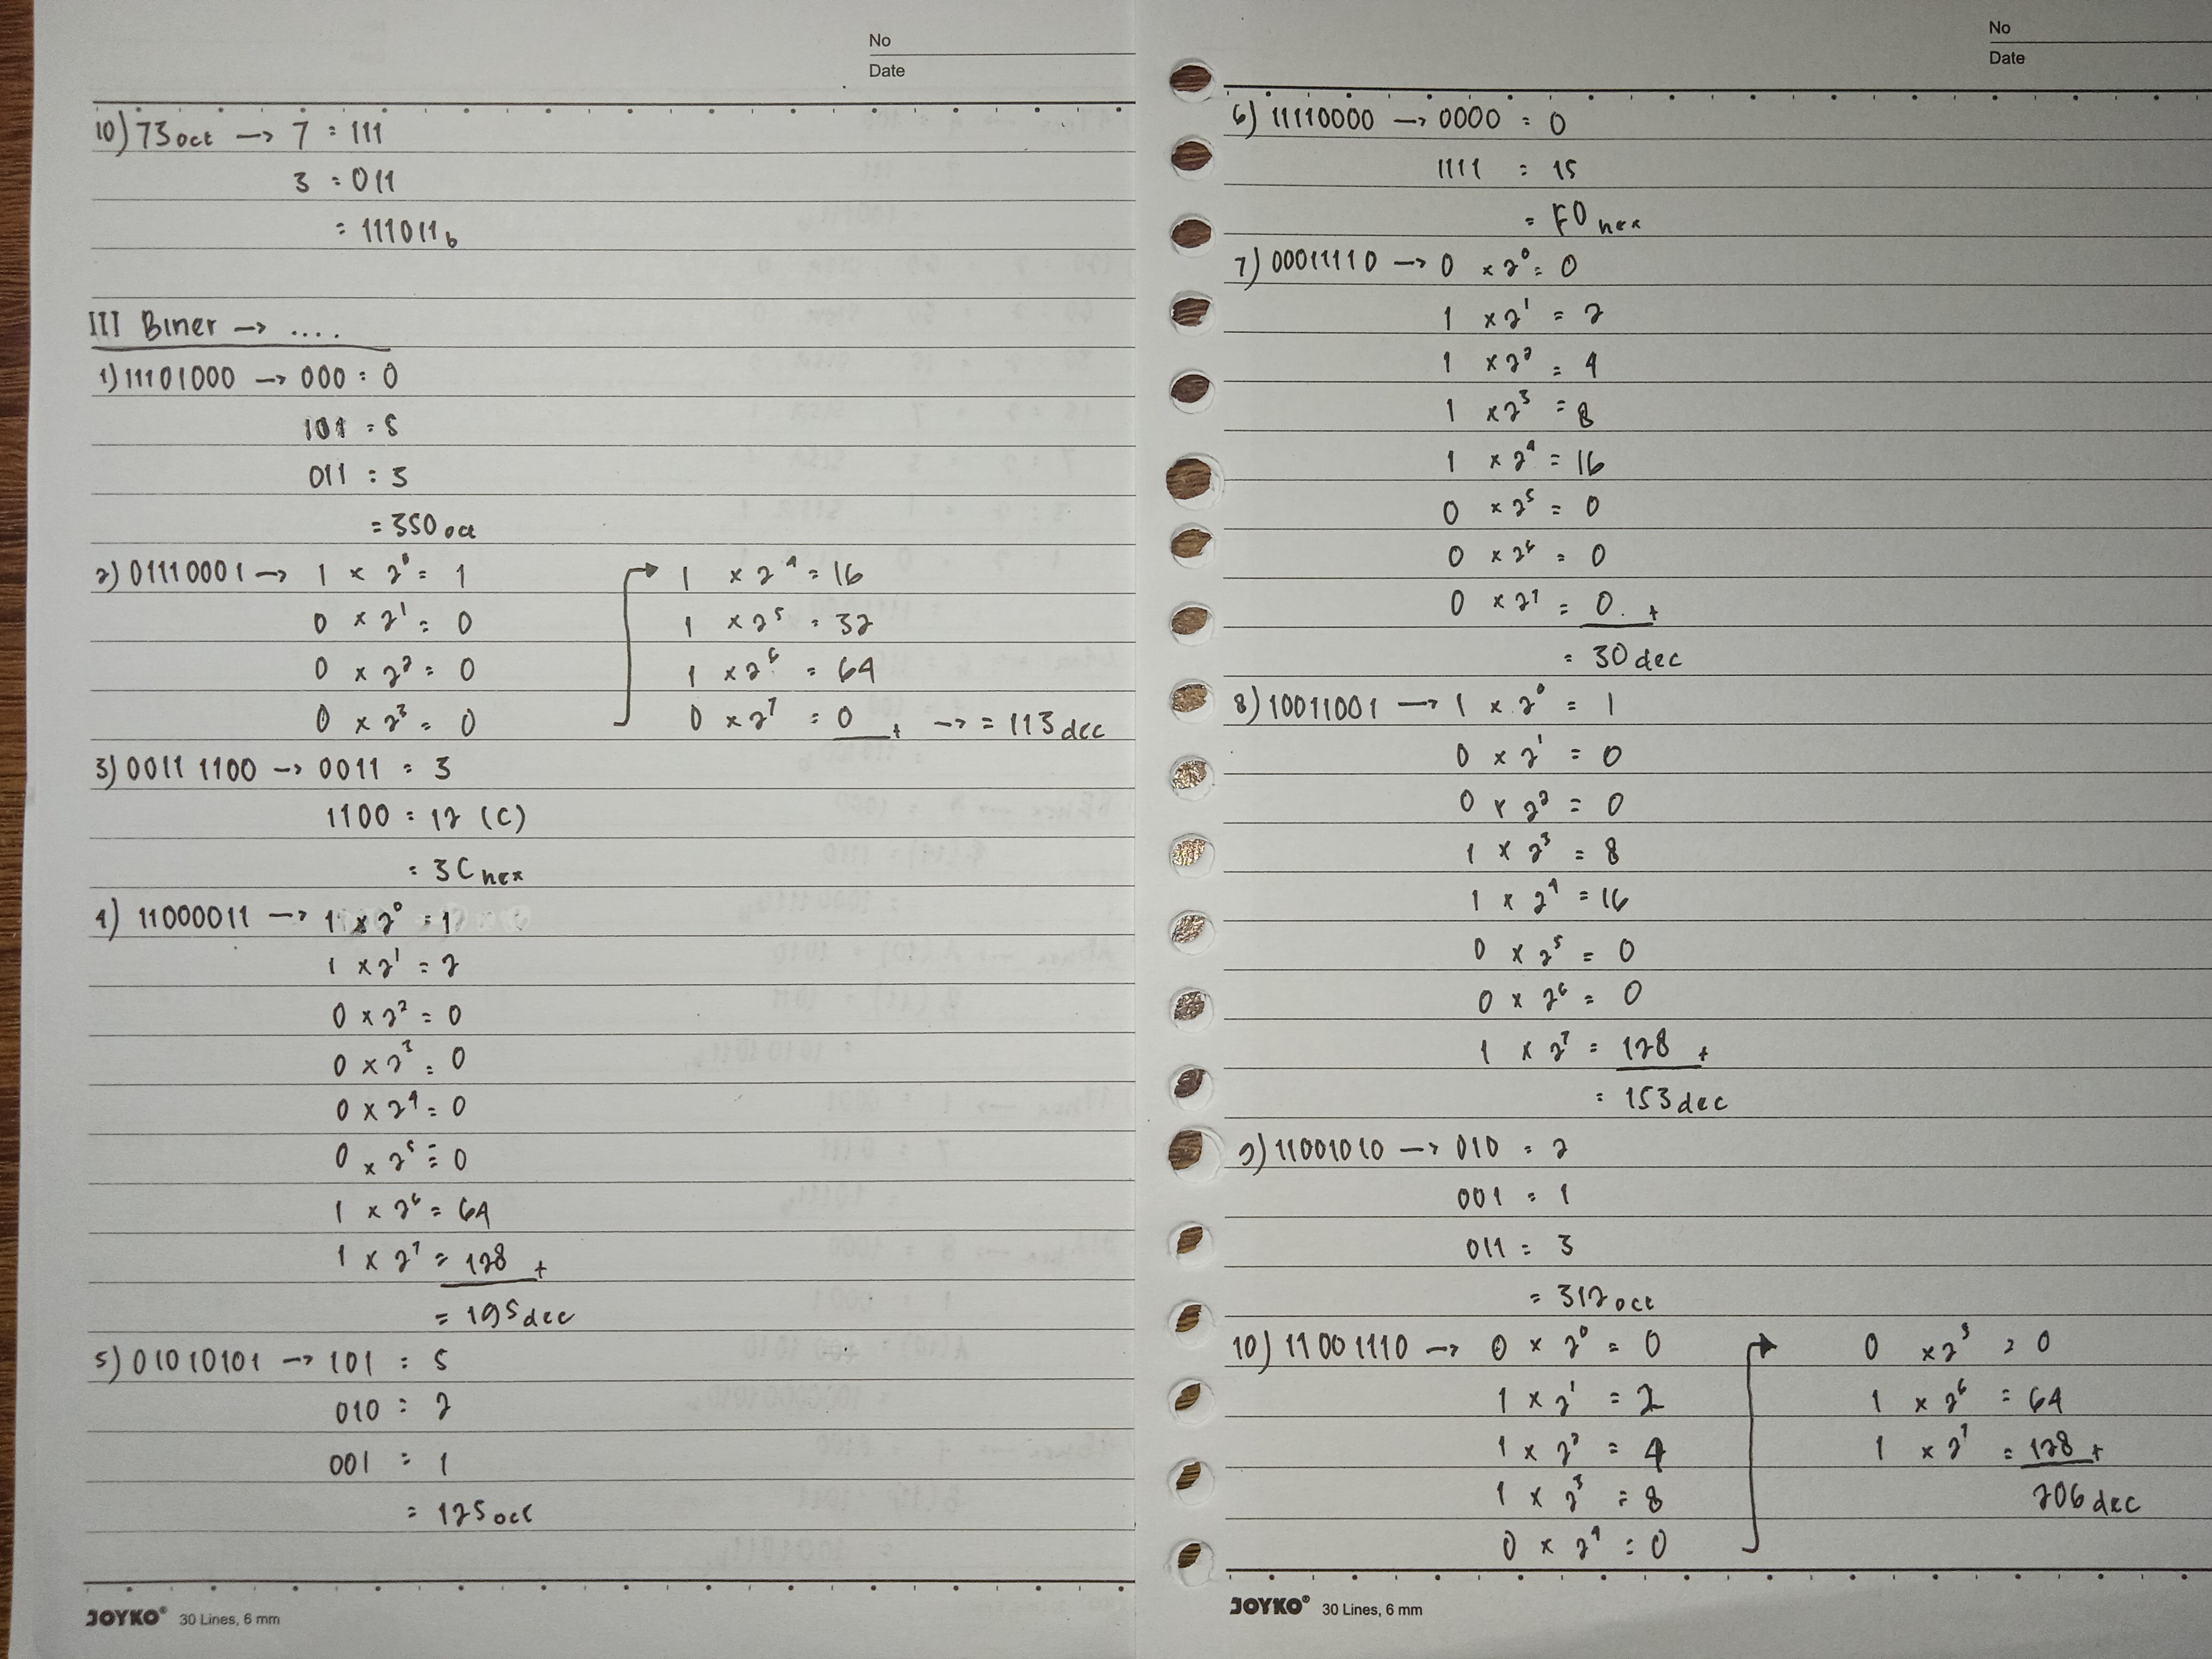 No
Date
10) 73 oct → 7 = 111
3 = 011
= 111011 b
III Biner → ....
1) 11101000 → 000 = 0
101 = 5
011 = 3
= 350 oct
2) 01110001 → 1 × 2⁰ = 1
0 × 2¹ = 0
0 × 2² = 0
0 × 2³ = 0
1 × 2⁴ = 16
1 × 2⁵ = 32
1 × 2⁶ = 64
0 × 2⁷ = 0 + → = 113 dec
3) 0011 1100 → 0011 = 3
1100 = 12 (C)
= 3C hex
4) 11000011 → 1 × 2⁰ = 1
1 × 2¹ = 2
0 × 2² = 0
0 × 2³ = 0
0 × 2⁴ = 0
0 × 2⁵ = 0
1 × 2⁶ = 64
1 × 2⁷ = 128 +
= 195 dec
5) 01010101 → 101 = 5
010 = 2
001 = 1
= 125 oct
JOYKO® 30 Lines, 6 mm
No
Date
6) 11110000 → 0000 = 0
1111 = 15
= F0 hex
7) 00011110 → 0 × 2⁰ = 0
1 × 2¹ = 2
1 × 2² = 4
1 × 2³ = 8
1 × 2⁴ = 16
0 × 2⁵ = 0
0 × 2⁶ = 0
0 × 2⁷ = 0 +
= 30 dec
8) 10011001 → 1 × 2⁰ = 1
0 × 2¹ = 0
0 × 2² = 0
1 × 2³ = 8
1 × 2⁴ = 16
0 × 2⁵ = 0
0 × 2⁶ = 0
1 × 2⁷ = 128 +
= 153 dec
9) 11001010 → 010 = 2
001 = 1
011 = 3
= 312 oct
10) 11001110 → 0 × 2⁰ = 0
1 × 2¹ = 2
1 × 2² = 4
1 × 2³ = 8
0 × 2⁴ = 0
0 × 2⁵ = 0
1 × 2⁶ = 64
1 × 2⁷ = 128 +
206 dec
JOYKO® 30 Lines, 6 mm